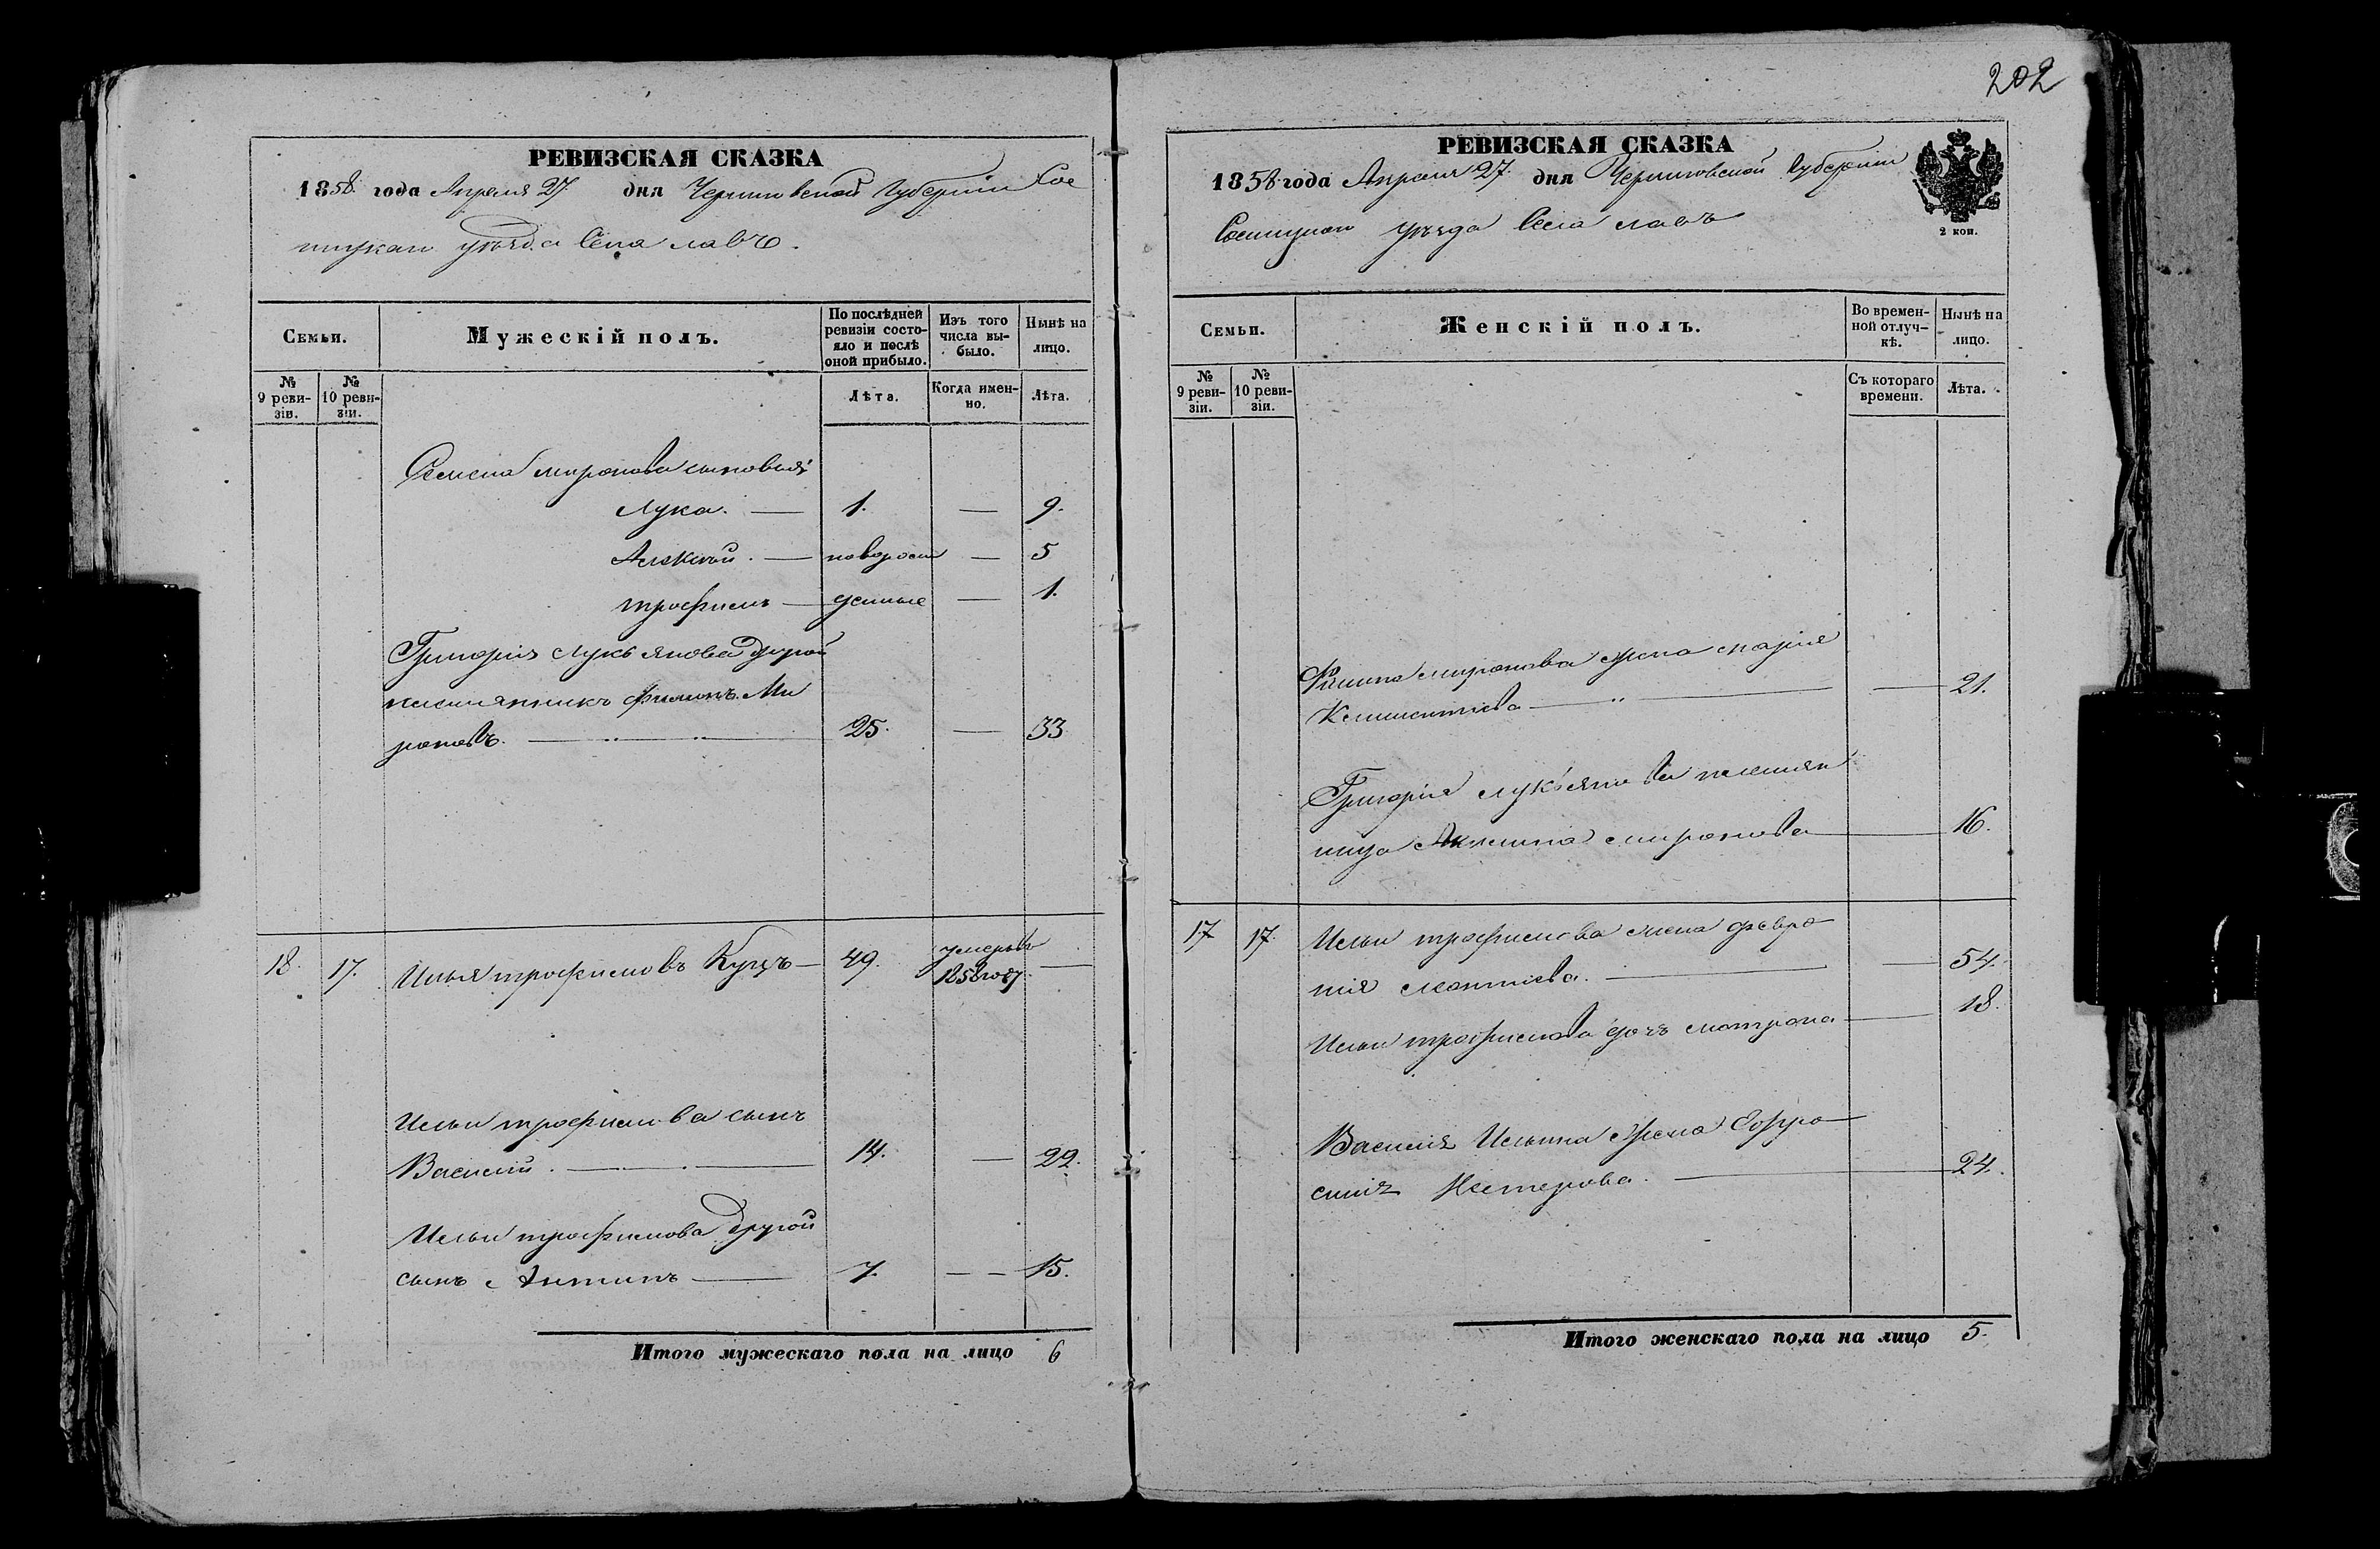 202
РЕВИЗСКАЯ СКАЗКА
1858 года Апреля 27 дня Черниговской Губернiи Сос
ницкаго уѣзда Села Лавъ.
Семьи.
Мужескiй полъ.
По послѣдней ревизiи состо-
яло и послѣ
оной прибыло.
Изъ того
числа вы-
было.
Нынѣ на
лицо.
№
9 реви-
зiи.
№
10 реви-
зiи.
Лѣта.
Когда имен-
но.
Лѣта.
Семена Миронова сыновья
Лука. — 1. — 9.
Алексѣй. — новорож — 5
Трофимъ — денные — 1.
Григорiя Лукьянова другой
племянникъ Филипъ Ми
роновъ. — 25. — 33
18. 17. Илья Трофимовъ Куцъ — 49. умеръ въ
1858 году. —
Ильи Трофимова сынъ
Василiй. — 14. — 22.
Ильи Трофимова другой
сынъ Антипъ — 7. — 15.
Итого мужескаго пола на лицо 6
РЕВИЗСКАЯ СКАЗКА
1858 года Апреля 27. дня Черниговской Губернiи
Сосницкаго уѣзда Села Лавъ
2 коп.
Семьи.
Женскiй полъ.
Во времен-
ной отлуч-
кѣ.
Нынѣ на
лицо.
№
9 реви-
зiи.
№
10 реви-
зiи.
Съ котораго
времени.
Лѣта.
Филипа Миронова жена Марiя
Климентiева — 21.
Григорiя Лукьянова племян
ница Акилина Миронова — 16.
17. 17. Ильи Трофимова жена Февро
нiя Леонтiева. — 54.
Ильи Трофимова дочь Матрона — 18.
Василiя Ильина жена Ефро
синiя Нестерова. — 24.
Итого женскаго пола на лицо 5.